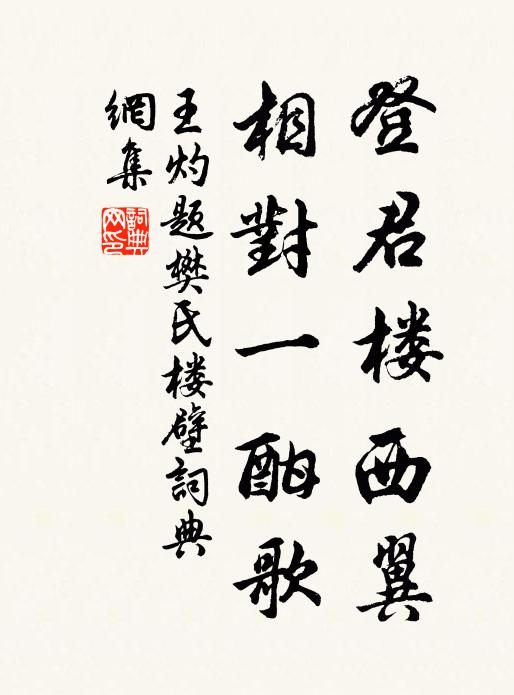 登君楼西翼
相對一酣歌
王灼題樊氏楼壁詞典
網集
詞典網印